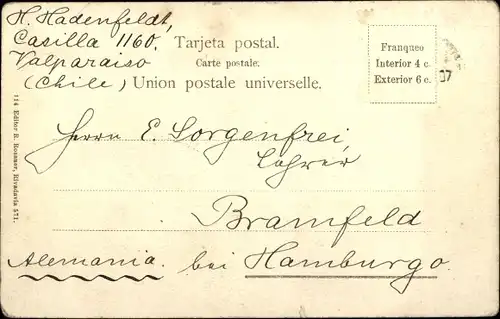 H. Hadenfeldt,
Casilla 1160.
Valparaiso
(Chile)
Tarjeta postal.
Carte postale:
Union postale universelle.
Franqueo
Interior 4 c.
Exterior 6 c.
07
Herrn E. Sorgenfrei,
Lehrer
Bramfeld
bei Hamburgo.
Alemania.
114 Editor R. Rosauer, Rivadavia 571.